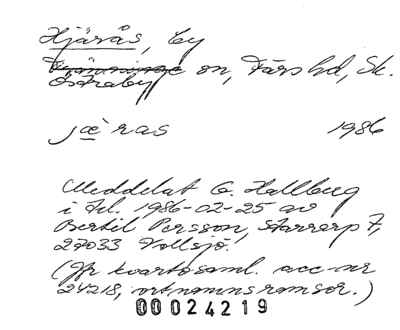 Hjärås, by
Östraby sn, Färs hd, Sk.
jæras 1986
Meddelat G. Hallberg
i tel. 1986-02-25 av
Bertil Persson, Starrarp 7,
27033 Vollsjö.
(Jfr kvartosaml. acc-nr
24218, ortnamnsramsor.)
00024219